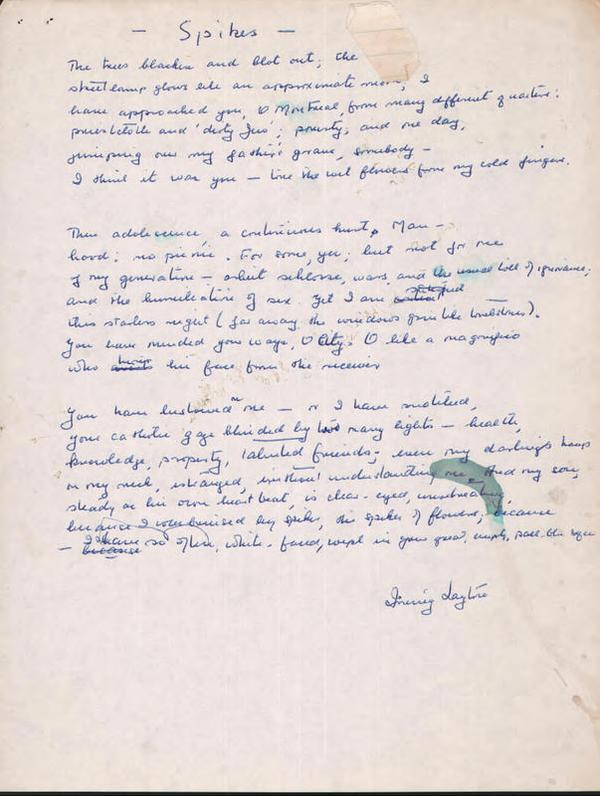 — Spikes —
The trees blacken and blot out; the
streetlamp glows like an approximate moon; I
have approached you, O Montreal, from many different quarters:
and 'dirty Jew'; poverty; and one day,
jumping over my father's grave, somebody —
I think it was you — tore the wet flowers from my cold fingers.
Then adolescence, a continuous hunt. Man-
hood: no picnic. For some, yes; but not for me
of my generation — wars, and the usual toll of ignorance;
and the humiliation of sex. Yet I am
this starless night (far away the windows gear like tombstones).
You have mended your ways, O City; O like a magnifico
who his face from the receiver
You have bestowed on me — or I have snatched,
your catholic gaze blinded by too many lights — health,
knowledge, property, talented friends; even my darling's hoops
on my neck, estranged, without understanding me. And my son,
steady as his own heart beat, is clear-eyed,
because I was bruised by spikes, the spikes of flowers; because
— I have so often, white-faced, wept in your great, empty, eyes
Irving Layton